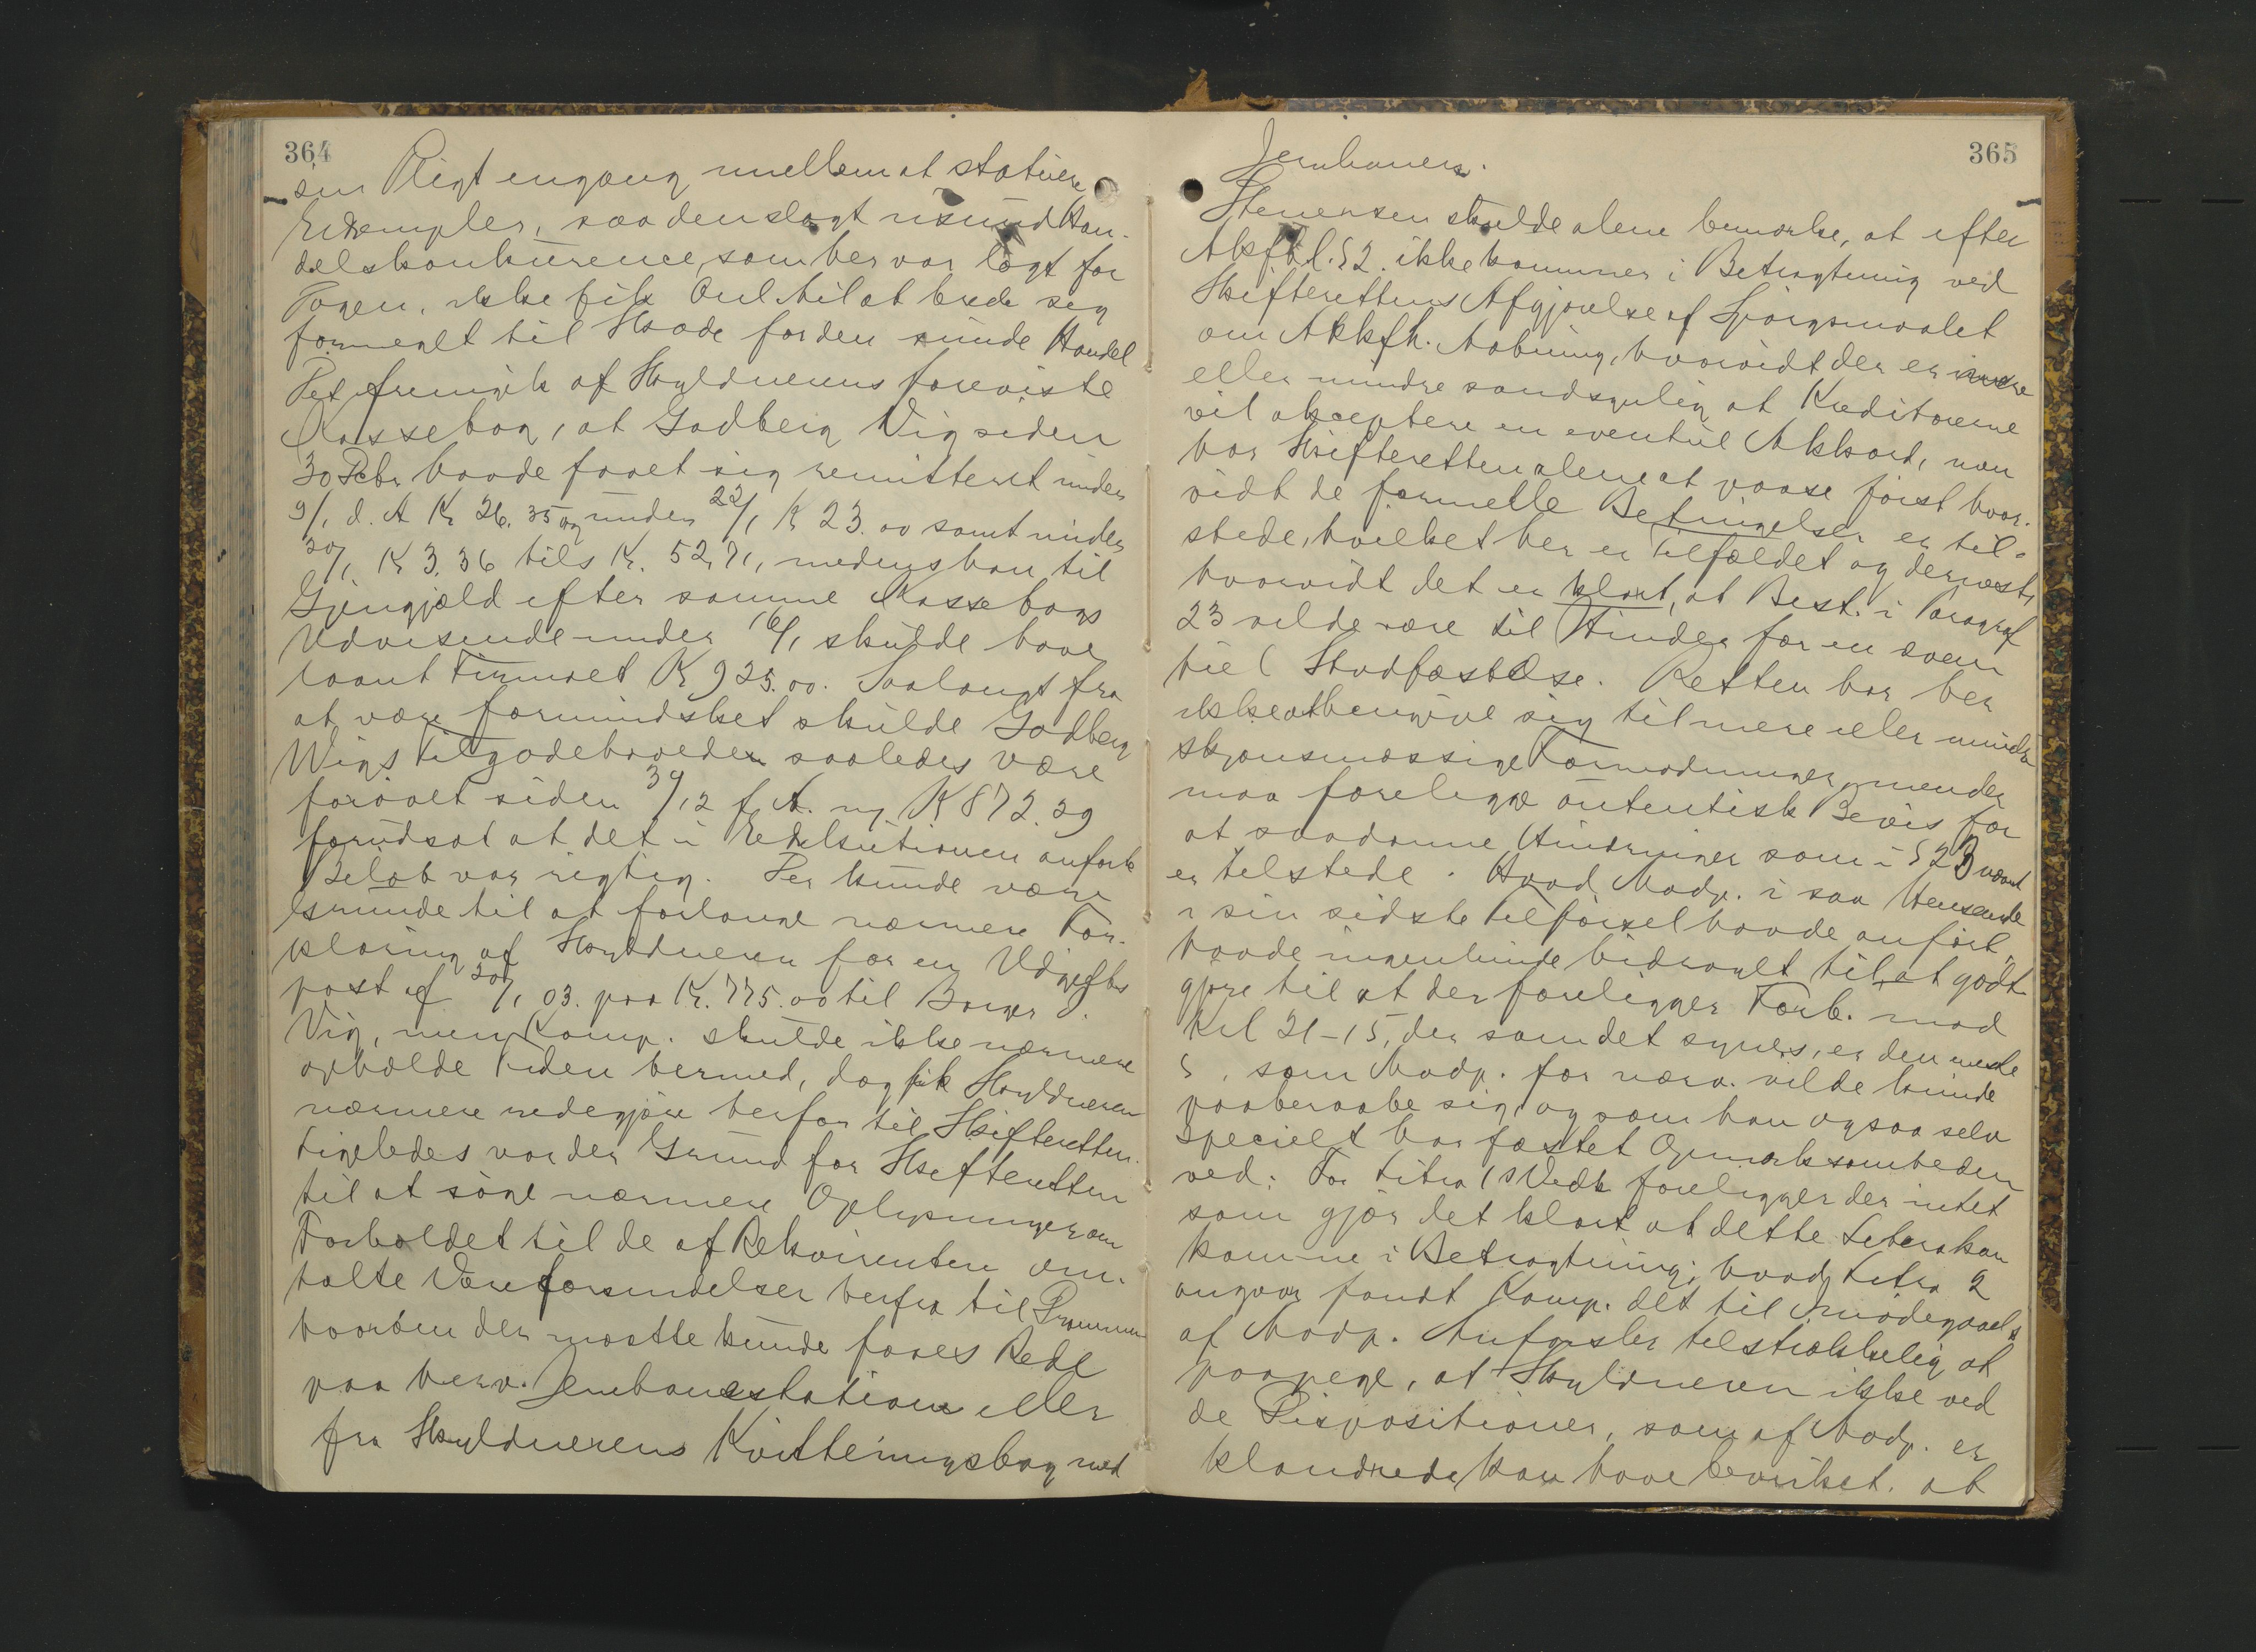 364
sin Pligt engang mellem at statuere
Exempler, saa denslagt usund Han-
delskonkurence, som her var lagt for
Dagen, ikke fik Anl. til at brede sig
formegt til Skade for den sunde Handel
Det fremgik af Skyldnerens foreviste
Kassebog, at Godberg Vig siden
30 Dcbr havde faaet sig remitteret under
9/1 d. A Kr 26.35 og under 22/1 Kr 23.00 samt under
30/1 Kr 3.36 tils Kr. 52,71, medens han til
Gjengjæld efter samme Kassebogs
Udvisende under 16/1 skulde have
laant Firmaet Kr 925.00. Saalangt fra
at være formindsket skulde Godberg
Wigs Tilgodehavender saaledes være
forøget siden 31/12 f. A. m. Kr 872.29
forudsat at det i Exekutionen anførte
Beløb var rigtig. Der kunde være
Grunde til at forlange nærmere For-
klaring af Skyldneren for en Udgifts
post af 20/1 03. paa Kr. 775.00 til Borger J.
Vig, men Komp. skulde ikke nærmere
opholde Tiden hermed, dog fik Skyldneren
nærmere redegjøre herfor til Skifteretten.
Ligeledes var der Grund for Skifteretten
til at søge nærmere Oplysninger om
Forholdet til de af Rekvirenten om-
talte Vareforsendelser herfra til Drammen
hvorom der maatte kunde faaes Rede
paa herv. Jernbanestation eller
fra Skyldnerens Kvitteringsbog med
365
Jernbanen.
Stenersen skulde alene bemærke, at efter
Akfbl. § 2. ikke kommer i Betragtning ved
Skifterettens Afgjørelse af Spørgsmaalet
om Akkfh. Aabning, hvorvidt der er mere
eller mindre sandsynlig at Kreditorerne
vil akceptere en eventuel Akkord, men
har Skifteretten alene at paase først hvor-
vidt de formelle Betingelser er til-
stede, hvilket her er Tilfældet og dernæst
hvorvidt det er klart, at Best. i Paragraf
23 vilde være til Hinder for en even
tuel Stadfæstelse. Retten har her
ikke at hengive sig til mere eller mindre
skjønsmæssige Formodninger, men der
maa foreligge autentisk Bevis for
at saadanne Hindringer som i § 23 nævnt
er tilstede. Hvad Modp. i saa Henseende
i sin sidste Tilførsel havde anført,
havde ingenlunde bidraget til at godt
gjøre til at der foreligger Forh. mod
Krl 21-15, der som det synes, er den eneste
§, som Modp. for nærv. vilde kunde
paaberaabe sig, og som han ogsaa selv
specielt har fæstet Opmærksomheden
ved: For Litra 1 Vedk foreligger der intet
som gjør det klart at dette Litera kan
komme i Betragtning; hvad Litra 2
angaar fandt Komp. det til Imødegaaelse
af Modp. Anførsler tilstrækkelig at
paapege, at Skyldneren ikke ved
de Dispositioner, som af Modp. er
klandrede, kan have bevirket, at